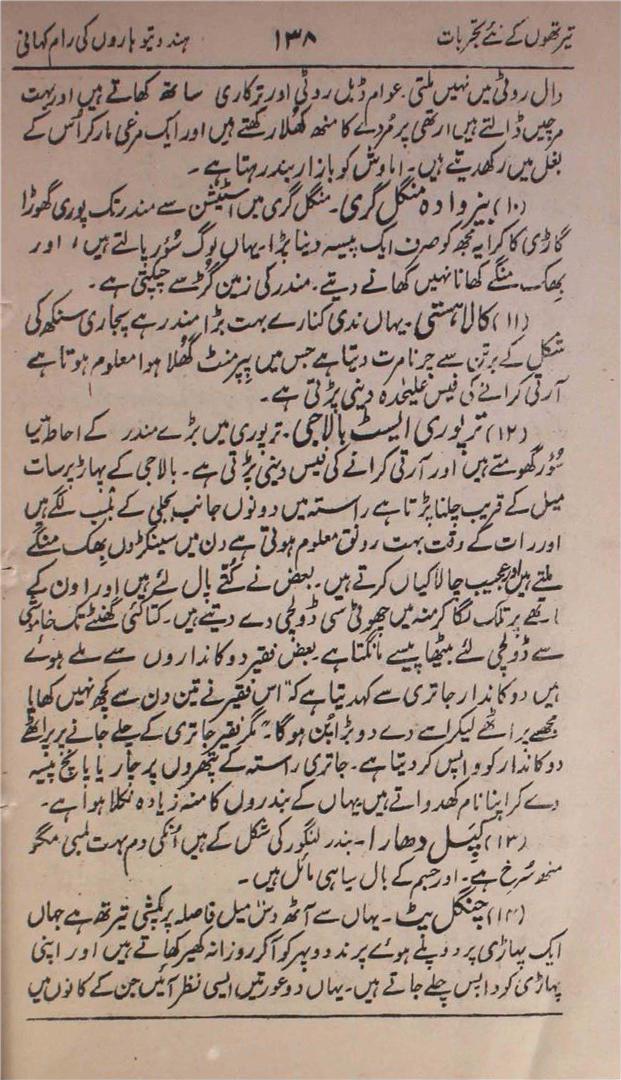 تیرتھوں کے نئے تجربات ۱۳۸ ہندو تیوہاروں کی رام کہانی
دال روٹی میں نہیں ملتی۔ عوام ڈبل روٹی اور ترکاری ساتھ کھاتے ہیں اور بہت
مرچیں ڈالتے ہیں ارتھی پر مُردے کا منھ کُھلا رکھتے ہیں اور ایک مرغی مار کر اُس کے
بغل میں رکھدیتے ہیں۔ اماوش کو بازار بند رہتا ہے۔
(۱۰) بیزوادہ منگل گری۔ منگل گری میں اسٹیشن سے مندر تک پوری گھوڑا
گاڑی کا کرایہ مجھ کو صرف ایک پیسہ دینا پڑا۔ یہاں لوگ سُؤر پالتے ہیں، اور
بھک منگے کھانا نہیں کھانے دیتے۔ مندر کی زمین گُڑ سے چپکتی ہے۔
(۱۱) کالا ہستی۔ یہاں ندی کنارے بہت بڑا مندر ہے پجاری سنکھ کی
شکل کے برتن سے چرنامرت دیتا ہے جس میں پپرمنٹ گُھلا ہوا معلوم ہوتا ہے
آرتی کرانے کی فیس علیٰحدہ دینی پڑتی ہے۔
(۱۲) ترپوری ایسٹ بالاجی۔ ترپوری میں بڑے مندر کے احاطہ میں
سُؤر گھومتے ہیں اور آرتی کرانے کی فیس دینی پڑتی ہے۔ بالاجی کے پہاڑ پر سات
میل کے قریب چلنا پڑتا ہے راستہ میں دونوں جانب بجلی کے بلب لگے ہیں
اور رات کے وقت بہت رونق معلوم ہوتی ہے دن میں سینکڑوں بھک منگے
ملتے ہیں اور عجیب چالاکیاں کرتے ہیں۔ بعض نے کُتے پال لئے ہیں اور اون کے
ماتھے پر تلک لگا کر منہ میں چھوٹی سی ڈولچی دے دیتے ہیں۔ کتا کئی گھنٹے تک خاموشی
سے ڈولچی لئے بیٹھا پیسے مانگتا ہے۔ بعض فقیر دوکانداروں سے ملے ہوئے
ہیں دوکاندار جاتری سے کہدیتا ہے کہ "اس فقیر نے تین دن سے کچھ نہیں کھایا
مجھ سے پراٹھے لیکر اسے دے دو بڑا پُن ہوگا۔" مگر فقیر جاتری کے چلے جانے پر پراٹھے
دوکاندار کو واپس کر دیتا ہے۔ جاتری راستہ کے پتھروں پر چار یا پانچ پیسہ
دے کر اپنا نام کھدواتے ہیں۔ یہاں کے بندروں کا منہ زیادہ نکلا ہوا ہے۔
(۱۳) کپل دھارا۔ بندر لنگور کی شکل کے ہیں اُنکی دم بہت لمبی مگر
منھ سُرخ ہے۔ اور جسم کے بال سیاہی مائل ہیں۔
(۱۴) چنگل پٹ۔ یہاں سے آٹھ دس میل فاصلہ پر پکشی تیرتھ ہے جہاں
ایک پہاڑی پر دو پلے ہوئے پرند دوپہر کو آکر روزانہ کھیر کھاتے ہیں اور اپنی
پہاڑی کو واپس چلے جاتے ہیں۔ یہاں دو عورتیں ایسی نظر آئیں جن کے کانوں میں